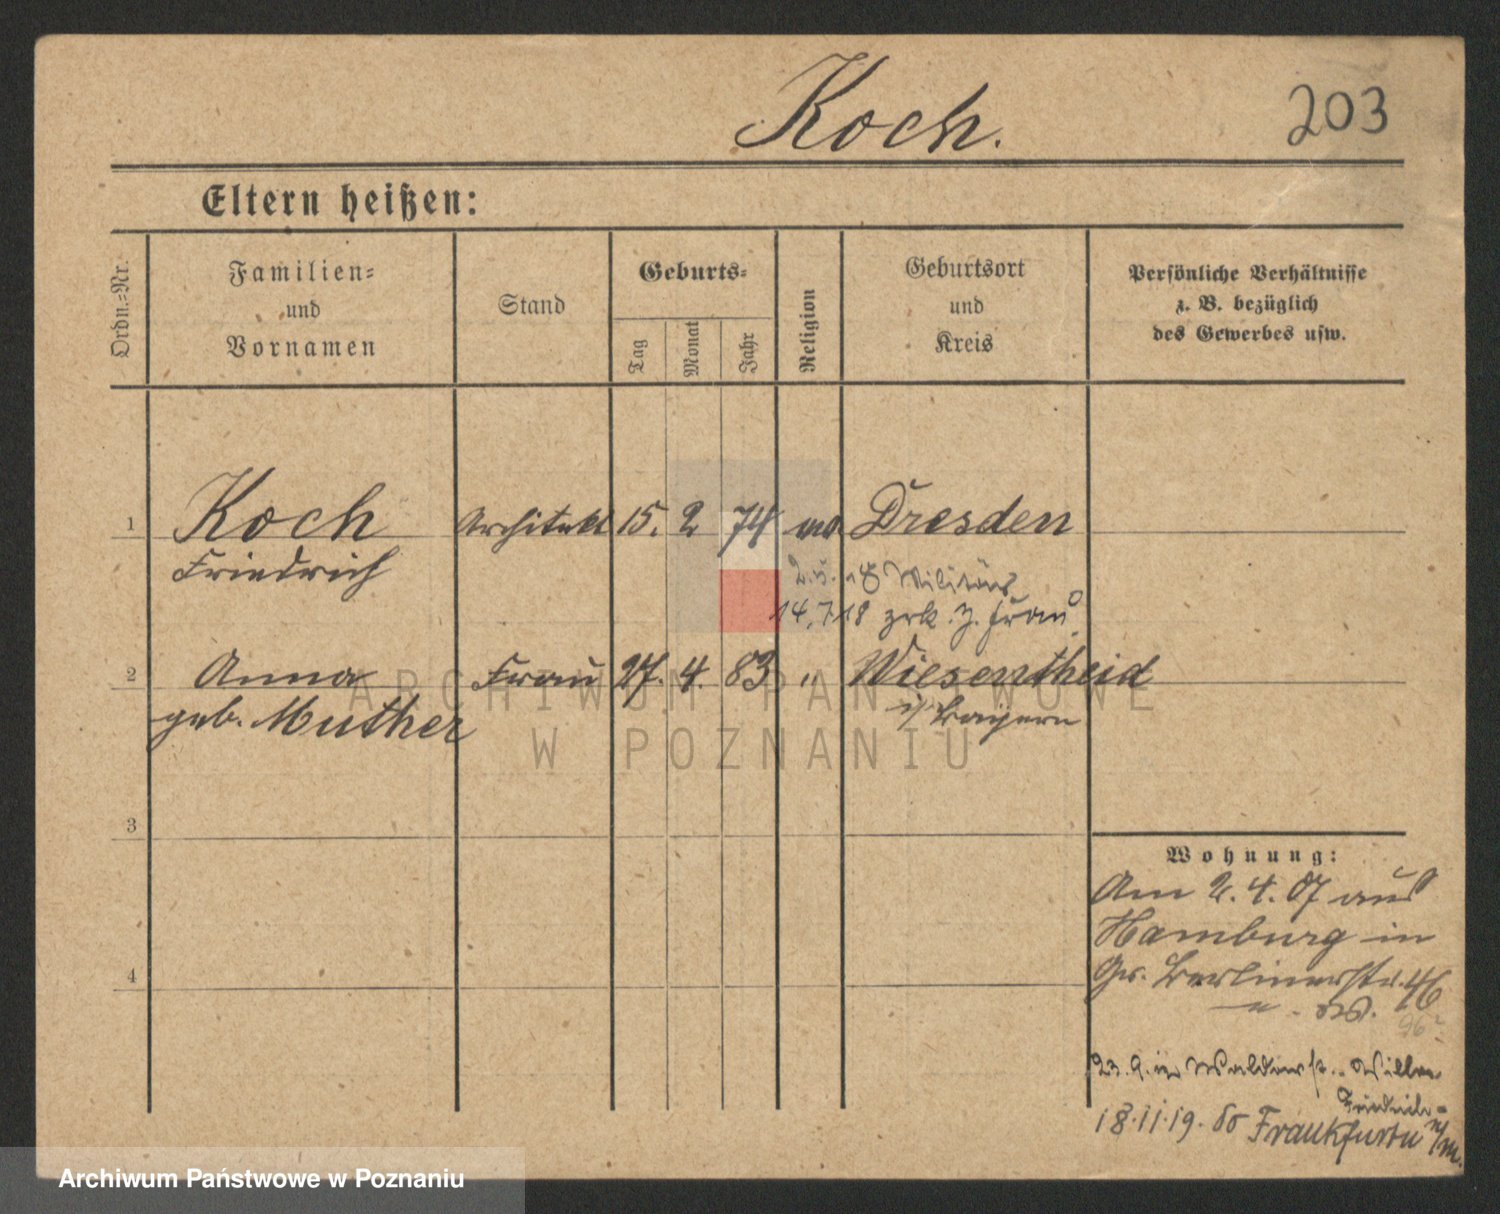 Koch.
203
Eltern heißen:
Ordn.=Nr.
Familien=
und
Vornamen
Stand
Geburts=
Tag
Monat
Jahr
Religion
Geburtsort
und
Kreis
Persönliche Verhältnisse
z. B. bezüglich
des Gewerbes usw.
1
Koch
Friedrich
Architekt
15.
2
74
Dresden
18 Militär
14.7.18 zrk. z. Frau
2
Anna
geb. Muther
Frau
27.
4.
83
"
Wiesentheid
i/ Bayern
3
4
Wohnung:
Am 2. 4. 07 aus
Hamburg in
Gr. Berlinerstr. 46
23. 9.
18.11.19. Frankfurt a/M.
ARCHIWUM PAŃSTWOWE
W POZNANIU
Archiwum Państwowe w Poznaniu